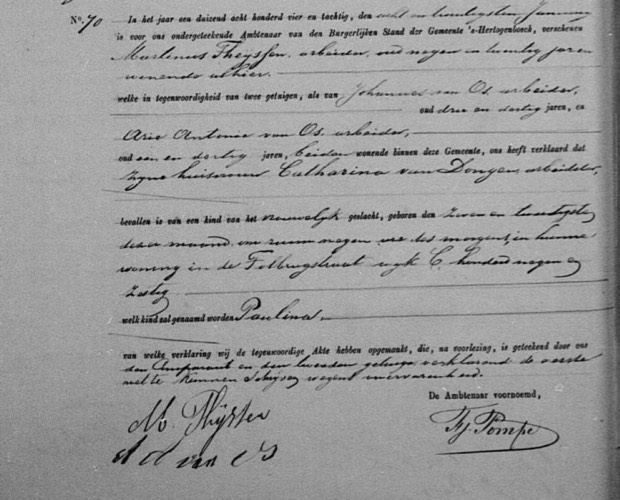 No. 70 In het jaar een duizend acht honderd vier en tachtig, den acht en twintigsten Januarij
is voor ons ondergeteekende Ambtenaar van den Burgerlijken Stand der Gemeente 's-Hertogenbosch, verschenen
Martinus Thijssen, arbeider, oud negen en twintig jaren
wonende alhier.
welke in tegenwoordigheid van twee getuigen, als van Johannes van Os, arbeider,
oud drie en dertig jaren, en
Arie Antonie van Os, arbeider,
oud een en dertig jaren, beiden wonende binnen deze Gemeente, ons heeft verklaard dat
zijne huisvrouw Catharina van Dongen, arbeidster,
bevallen is van een kind van het vrouwelijk geslacht, geboren den zeven en twintigsten
dezer maand, om ruim negen ure des morgens, in hunne
woning in de Tolbrugstraat wijk C. honderd negen en
zestig
welk kind zal genaamd worden Paulina.
van welke verklaring wij de tegenwoordige Akte hebben opgemaakt, die, na voorlezing, is geteekend door ons
den Comparant en den tweeden getuige, verklarend de eerste
niet te kunnen schrijven wegens onervarenheid.
De Ambtenaar voornoemd,
M. Thijssen
A A van Os
Pompe